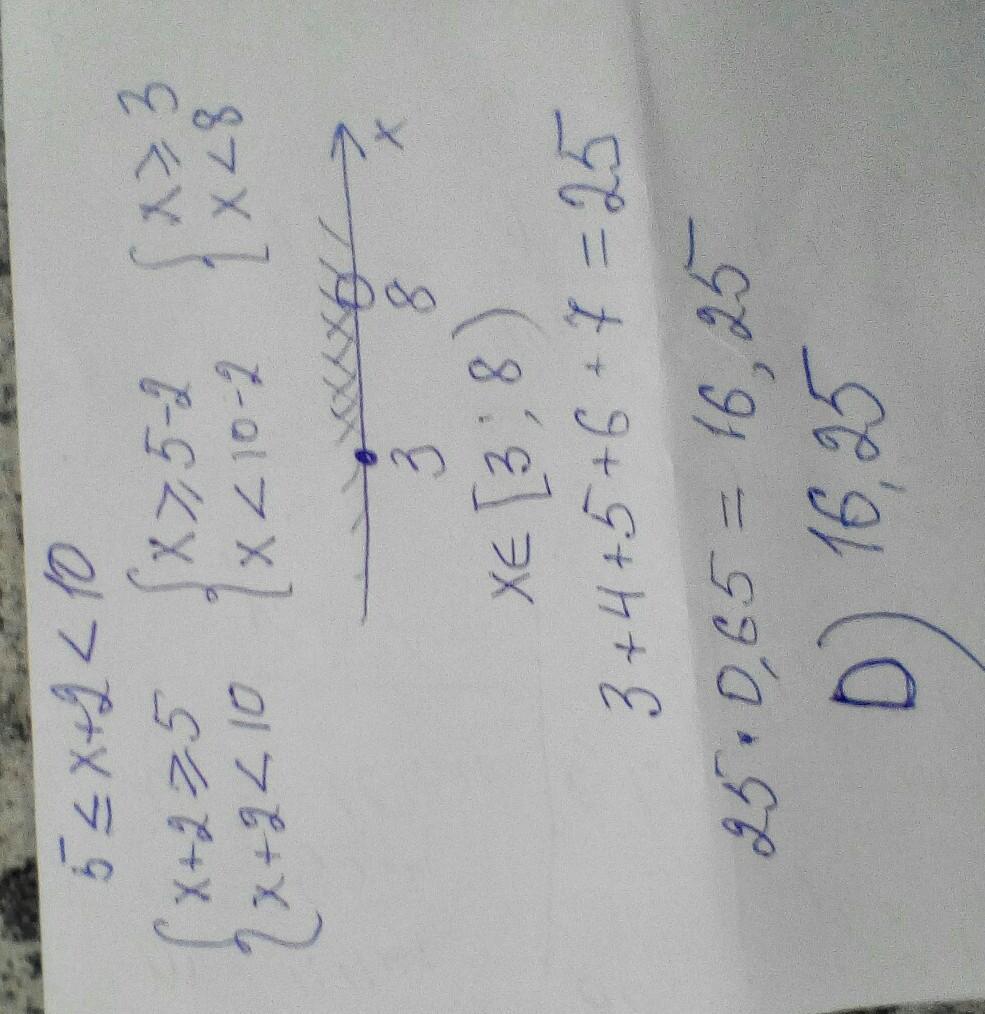 5 ≤ x+2 < 10
{ x+2 ⩾ 5 { x ⩾ 5-2 { x ⩾ 3
{ x+2 < 10 { x < 10-2 { x < 8
x
3 8
x ∈ [3 ; 8)
3 + 4 + 5 + 6 + 7 = 25
25 · 0,65 = 16,25
D) 16,25